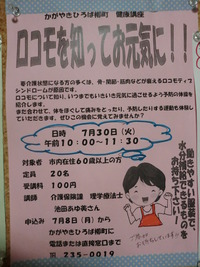 かがやきひろば柳町 健康講座
ロコモを知ってお元気に!!
要介護状態になる方の多くは、骨・関節・筋肉などが衰えるロコモティブ
シンドロームが原因です。
ロコモについて知り、いつまでもいきいき元気に過ごせるよう予防の体操を
紹介します。
また合わせて、体をほぐして痛みをとったり、予防したりする運動も体験し
ていただきます。ぜひこの機会に覚えてみませんか?
日時 7月30日(火)
午前10:00~11:30
対象者 市内在住60歳以上の方
定員 20名
受講料 100円
講師 介護保険課 理学療法士
池田あゆ美さん
申込み 7月8日(月)から
かがやきひろば柳町に
電話または直接窓口まで
電話 235-0019
動きやすい服装で、
水分補給できるものを
お持ち下さい!